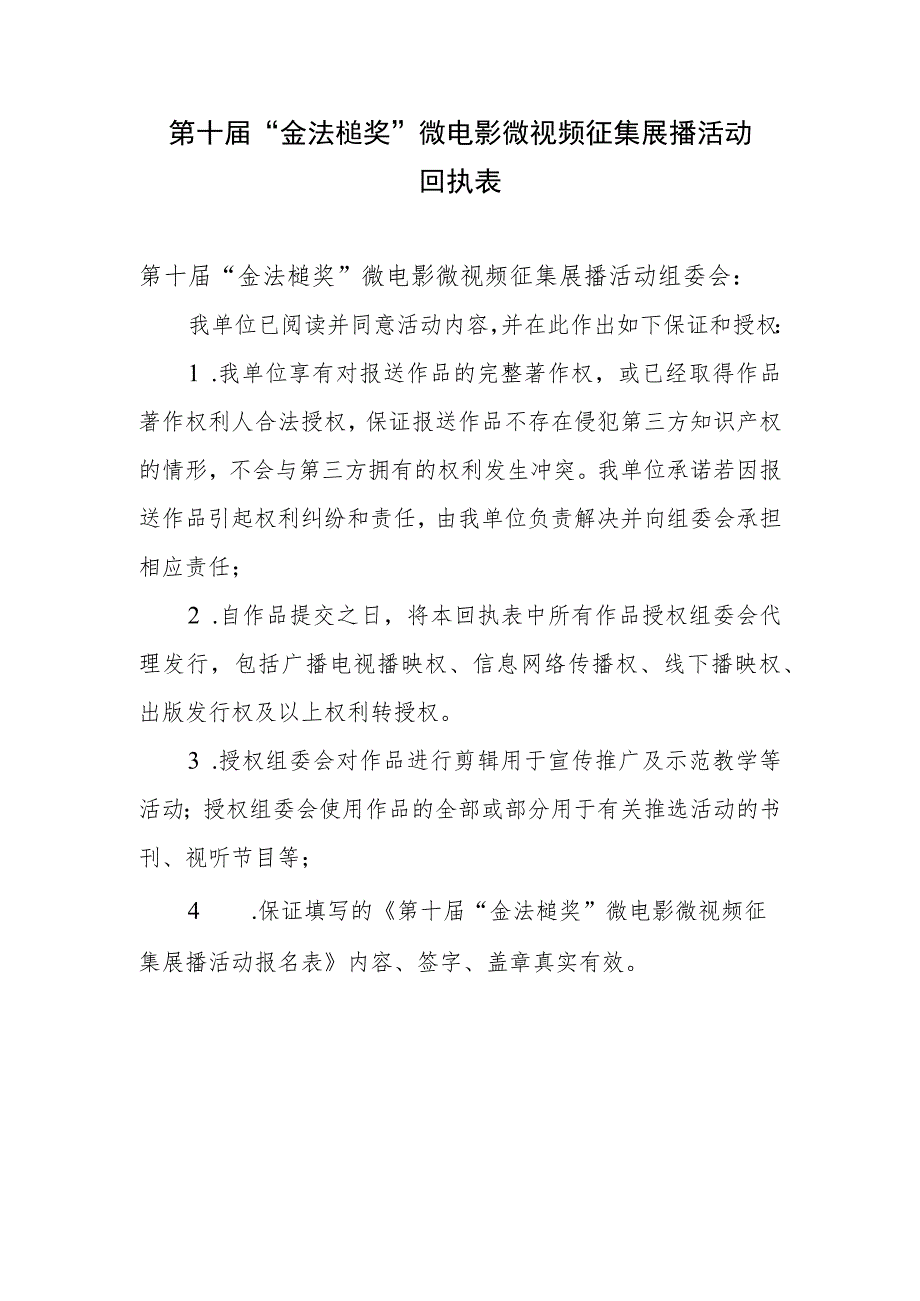 第十届“金法槌奖”微电影微视频征集展播活动
回执表
第十届“金法槌奖”微电影微视频征集展播活动组委会：
我单位已阅读并同意活动内容,并在此作出如下保证和授权:
1 .我单位享有对报送作品的完整著作权，或已经取得作品
著作权利人合法授权，保证报送作品不存在侵犯第三方知识产权
的情形，不会与第三方拥有的权利发生冲突。我单位承诺若因报
送作品引起权利纠纷和责任，由我单位负责解决并向组委会承担
相应责任；
2 .自作品提交之日，将本回执表中所有作品授权组委会代
理发行，包括广播电视播映权、信息网络传播权、线下播映权、
出版发行权及以上权利转授权。
3 .授权组委会对作品进行剪辑用于宣传推广及示范教学等
活动；授权组委会使用作品的全部或部分用于有关推选活动的书
刊、视听节目等；
4 .保证填写的《第十届“金法槌奖”微电影微视频征
集展播活动报名表》内容、签字、盖章真实有效。